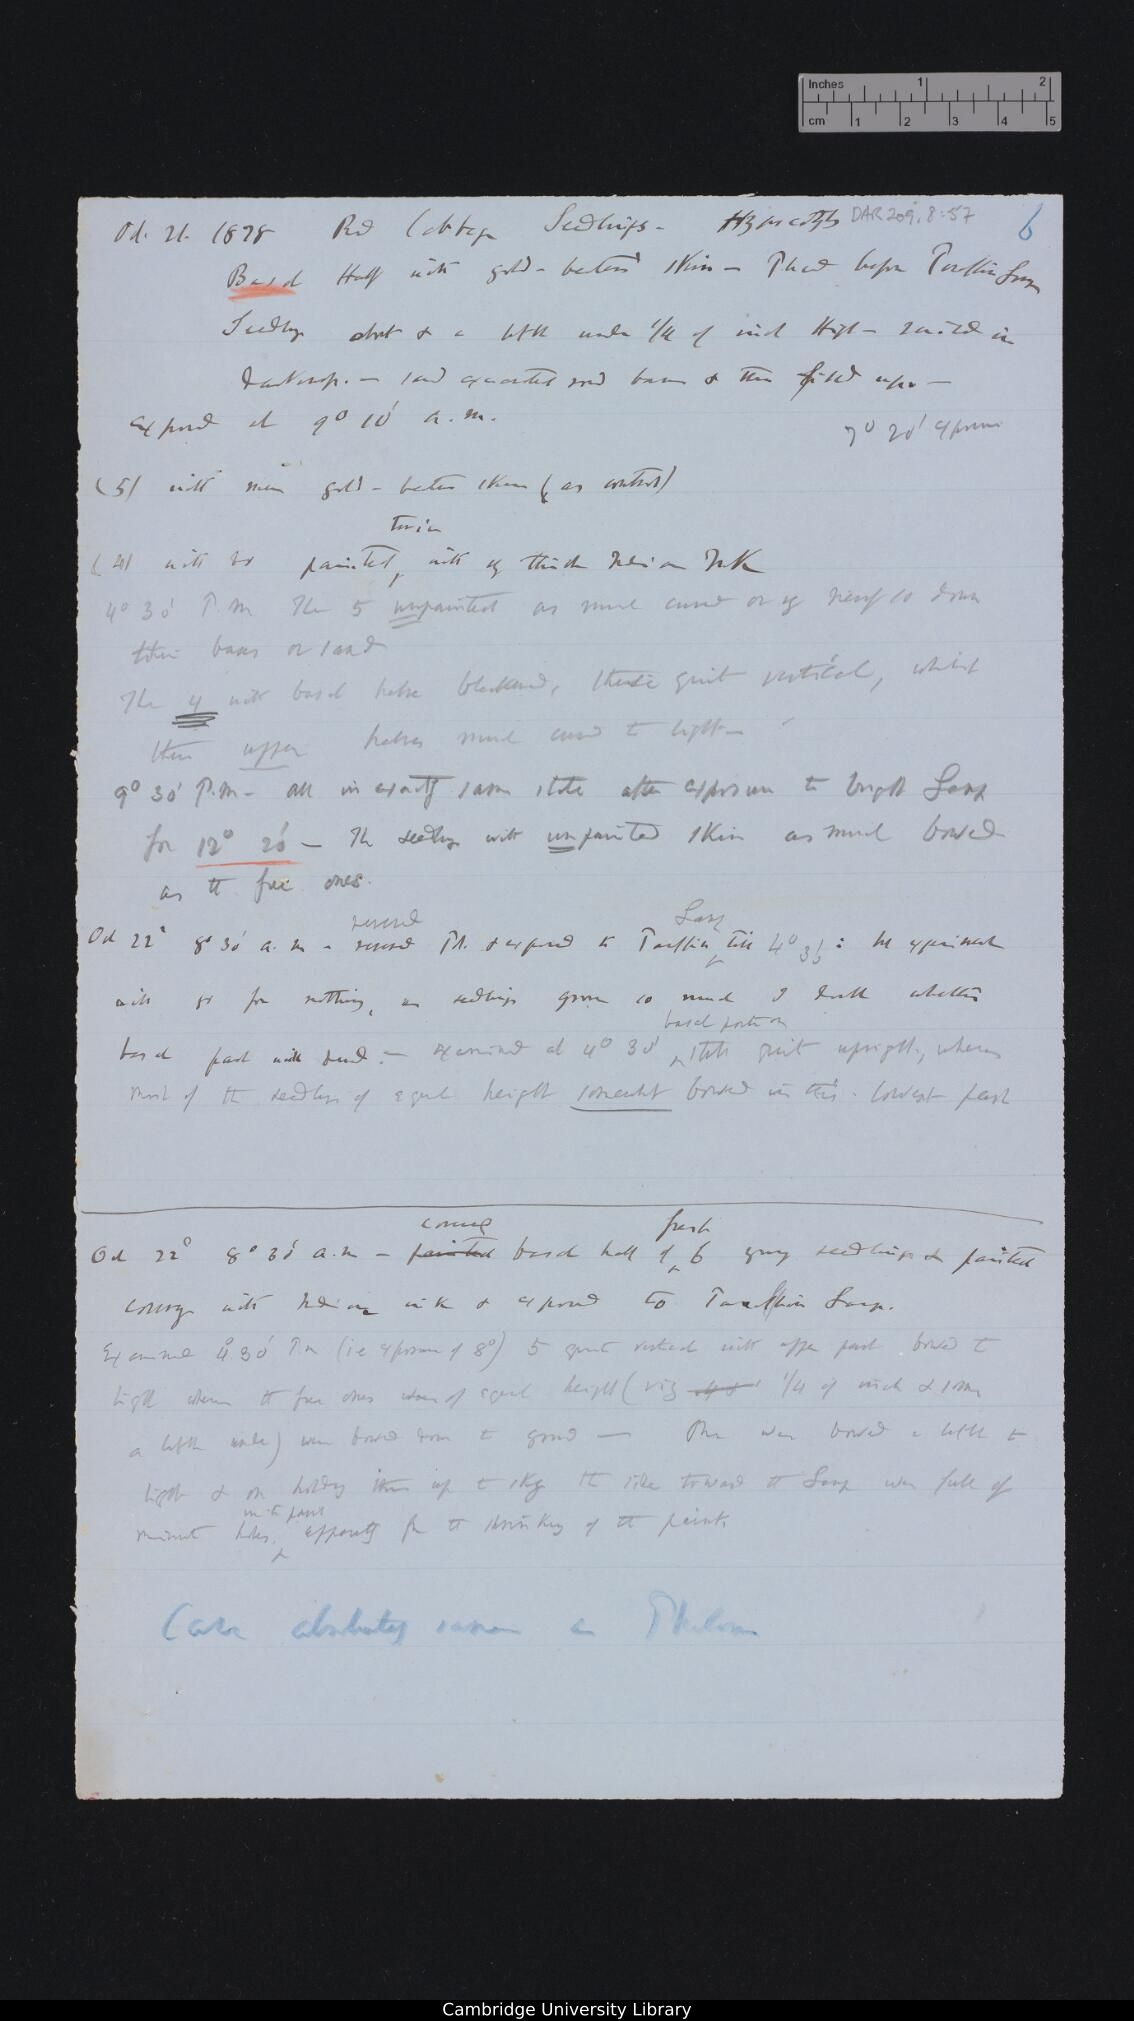 Inches 1 2
cm 1 2 3 4 5
Oct. 21. 1878 Red Cabbage Seedlings – Hypocotyls DAR 209.8:57 6
Basal Half with gold-beaters skin – Placed before Paraffin Lamp
Seedlings short & a little under 1/4 of inch High – raised in
darkness. – sand excavated round bases & then filled up –
exposed at 9° 10' a.m.
7° 20' exposure
(5) with mere gold-beaters skin (as control)
twice
(4) with do painted, with thick Indian Ink
4° 30' P.m The 5 unpainted as much curved or nearly so down
their bases or sand
The 4 with basal halves blackened, these quite vertical, whilst
their upper halves much curved to light –
9° 30' P.m – all in exactly same state after exposure to bright Lamp
for 12° 20' – The seedlings with unpainted skin as much bowed
as the free ones.
reversed Lamp
Oct 22° 8° 30' a.m – reversed Pot. & exposed to Paraffin till 4° 35' : the experiment
will go for nothing, as seedlings grown so much I doubt whether
basal portion
basal part will bend – examined at 4° 30' quite upright, whereas
most of the seedlings of equal height somewhat bowed in this lowest part
covered fresh
Oct 22° 8° 30' a.m – painted basal half of 6 young seedlings & painted
with Indian ink & exposed to Paraffin Lamp.
Examined 4° 30' P.m (i.e exposure of 8°) 5 quite vertical with upper part bowed to
light whereas the free ones of equal height (viz 1/4 of inch & some
a little under) were bowed down to ground – One was bowed a little to
light & on holding this up to sky the side toward the Lamp was full of
in the paint
minute holes, apparently from the shrinking of the paint.
Case absolutely same as Phalaris
Cambridge University Library